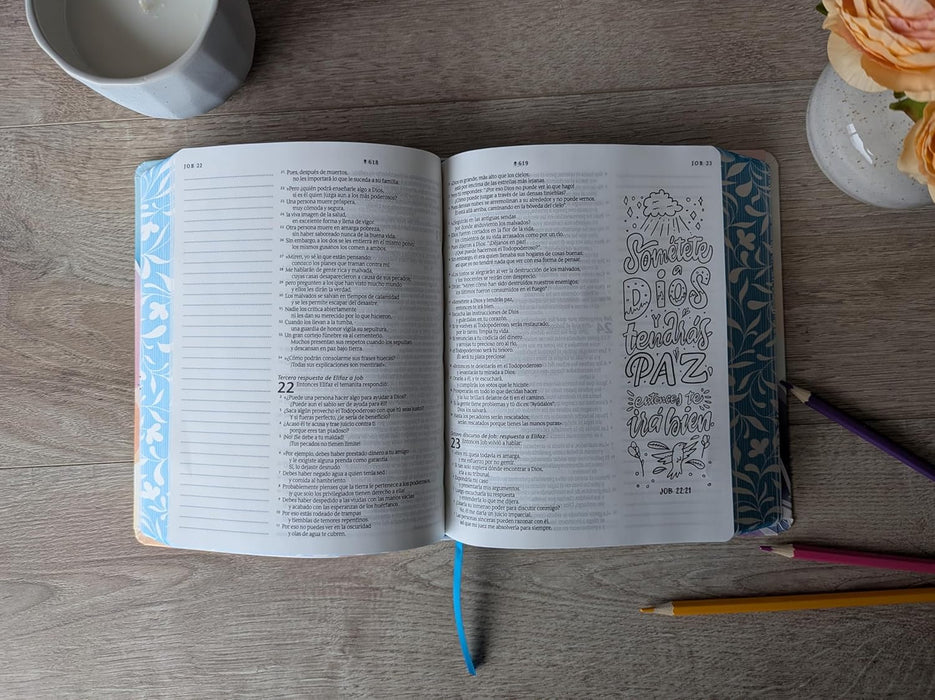 JOB 22
618
21 Pues, después de muertos,
no les importará lo que le suceda a su familia.
22 »¿Pero quién podrá enseñarle algo a Dios,
si es él quien juzga aun a los más poderosos?
23 Una persona muere próspera,
muy cómoda y segura,
24 la viva imagen de la salud,
en excelente forma y llena de vigor.
25 Otra persona muere en amarga pobreza,
sin haber saboreado nunca de la buena vida.
26 Sin embargo, a los dos se les entierra en el mismo polvo;
los mismos gusanos los comen a ambos.
27 »Miren, yo sé lo que están pensando;
conozco los planes que traman contra mí.
28 Me hablarán de gente rica y malvada,
cuyas casas desaparecieron a causa de sus pecados;
29 pero pregunten a los que han visto mucho mundo
y ellos les dirán la verdad.
30 Los malvados se salvan en tiempos de calamidad
y se les permite escapar del desastre.
31 Nadie los critica abiertamente
ni les dan su merecido por lo que hicieron.
32 Cuando los llevan a la tumba,
una guardia de honor vigila su sepultura.
33 Un gran cortejo fúnebre va al cementerio.
Muchos presentan sus respetos cuando los sepultan
y descansan en paz bajo tierra.
34 »¿Cómo podrán consolarme sus frases huecas?
¡Todas sus explicaciones son mentiras!».
Tercera respuesta de Elifaz a Job
22 Entonces Elifaz el temanita respondió:
2 »¿Puede una persona hacer algo para ayudar a Dios?
¿Puede aun el sabio ser de ayuda para él?
3 ¿Saca algún provecho el Todopoderoso con que tú seas justo?
Y si fueras perfecto, ¿le sería de beneficio?
4 ¿Acaso él te acusa y trae juicio contra ti
porque eres tan piadoso?
5 ¡No! ¡Se debe a tu maldad!
¡Tus pecados no tienen límite!
6 »Por ejemplo, debes haber prestado dinero a tu amigo
y le exigiste alguna prenda como garantía.
Sí, lo dejaste desnudo.
7 Debes haber negado agua a quien tenía sed
y comida al hambriento.
8 Probablemente pienses que la tierra le pertenece a los poderosos,
¡y que solo los privilegiados tienen derecho a ella!
9 Debes haber despedido a las viudas con las manos vacías
y acabado con las esperanzas de los huérfanos.
10 Por eso estás rodeado de trampas
y tiemblas de temores repentinos.
11 Por eso no puedes ver en la oscuridad
y olas de agua te cubren.
619
JOB 23
es grande, más alto que los cielos,
está por encima de las estrellas más lejanas.
Pero tú respondes: "¡Por eso Dios no puede ver lo que hago!
¿Cómo puede juzgar a través de las densas tinieblas?
densas nubes se arremolinan a su alrededor y no puede vernos.
Él está allá arriba, caminando en la bóveda del cielo"
en las antiguas sendas
por donde anduvieron los malvados?
fueron cortados en la flor de la vida,
los cimientos de su vida arrasados como por un río.
dijeron a Dios: "¡Déjanos en paz!
¿Qué puede hacernos el Todopoderoso?".
Sin embargo, él era quien llenaba sus hogares de cosas buenas;
se alegrarán al ver la destrucción de los malvados,
y los inocentes se reirán con desprecio.
"Miren cómo han sido destruidos nuestros enemigos;
los últimos fueron consumidos en el fuego"
y tendrás paz,
entonces te irá bien.
las instrucciones de Dios
y guárdalas en tu corazón.
Si te vuelves al Todopoderoso, serás restaurado,
por lo tanto, limpia tu vida.
Si renuncias a tu codicia del dinero
y arrojas tu precioso oro al río,
el Todopoderoso será tu tesoro.
¡Él será tu plata preciosa!
te deleitarás en el Todopoderoso
y levantarás tu mirada a Dios.
Orarás a él, y te escuchará,
y cumplirás los votos que le hiciste.
Prosperarás en todo lo que decidas hacer
y la luz brillará delante de ti en el camino.
Si la gente tiene problemas y tú dices "Ayúdalos",
Dios los salvará.
Hasta los pecadores serán rescatados;
serán rescatados porque tus manos son puras».
discurso de Job: respuesta a Elifaz
23 Entonces Job volvió a hablar:
mi queja todavía es amarga,
y me esfuerzo por no gemir.
Si tan solo supiera dónde encontrar a Dios,
iría a su tribunal.
Expondría mi caso
y presentaría mis argumentos.
Luego escucharía su respuesta
y entendería lo que me dijera.
¿Usaría su inmenso poder para discutir conmigo?
No, él me daría un juicio imparcial.
Las personas sinceras pueden razonar con él,
así que mi juez me absolvería para siempre.
Sométete
a
DIOS
y
tendrás
PAZ,
entonces te
irá bien.
JOB 22:21